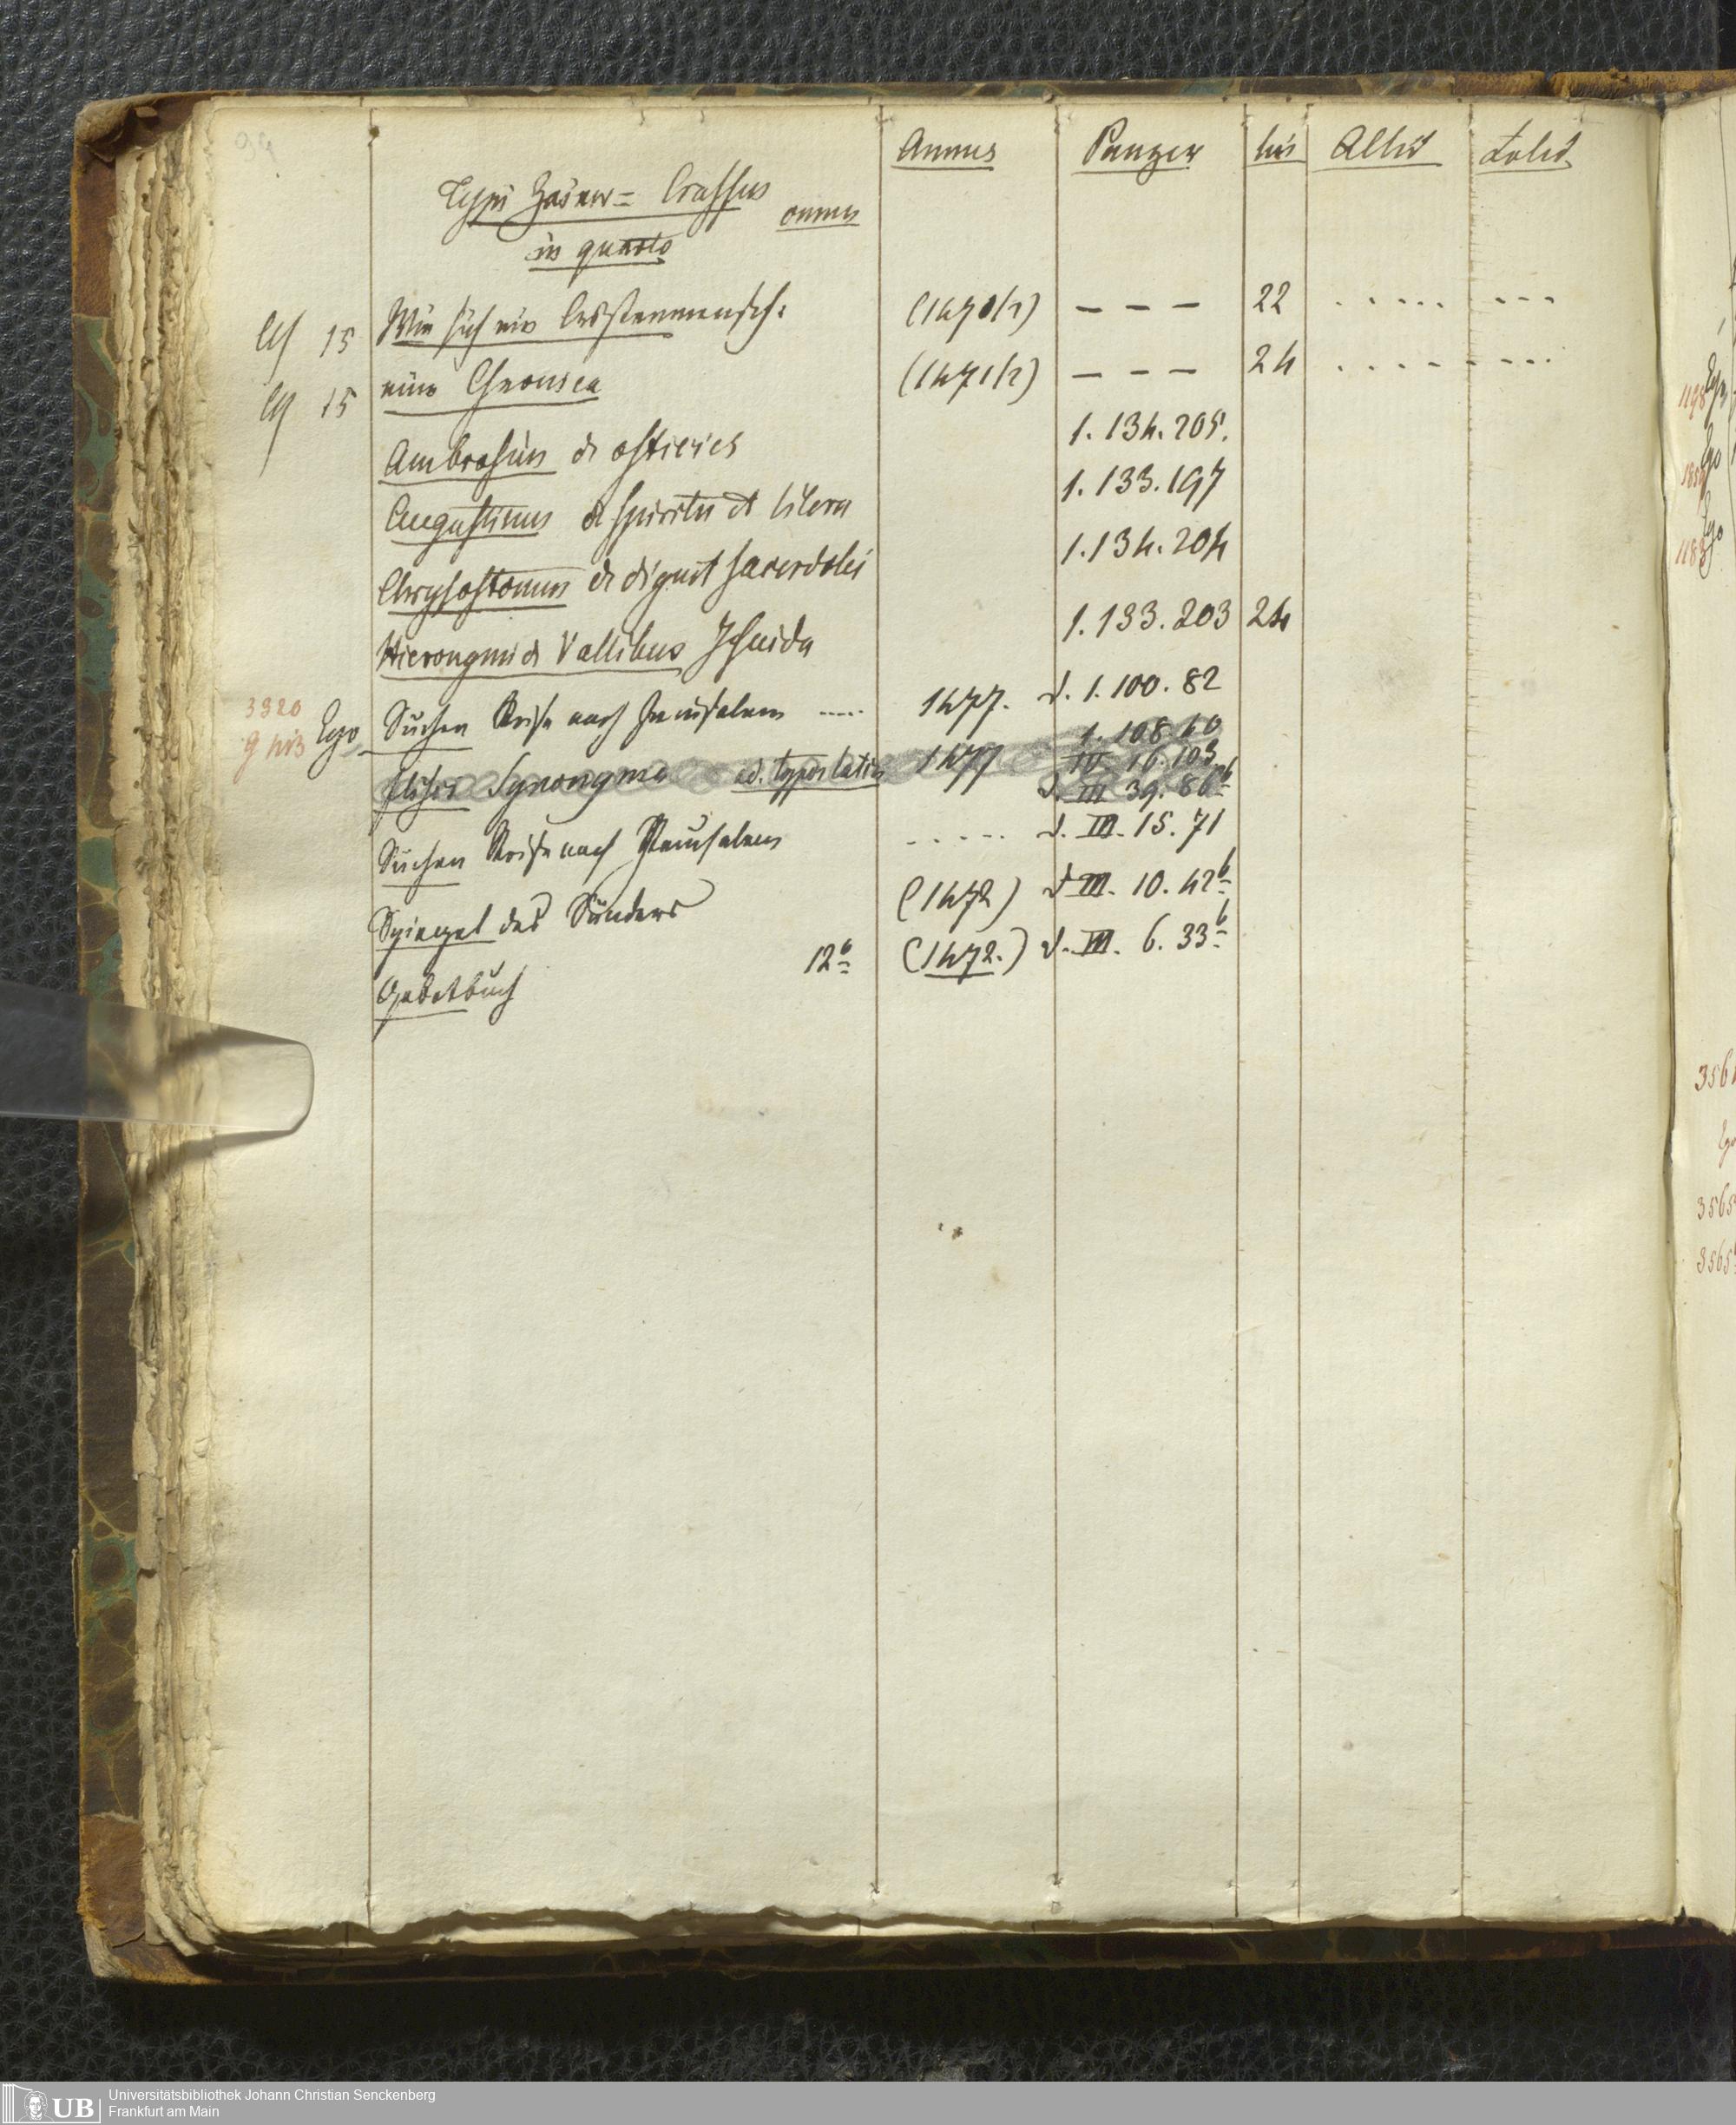 Annus Panzer lin Altit Latit
Typi Zainer = Crassus omnes
in quarto
15 Wie sich ein Cristenmensch: (1470/1) - - - 22 . . . . . - - -
15 eine Chronica (1471/2) - - - 24 . . . . . . . .
Ambrosius de officiis 1. 134. 205.
Augustinus de spiritu et litera 1. 133. 197
Chrysostomus de dignit sacerdotii 1. 134. 204
Hieronymi de Vallibus Jhesuida 1. 133. 203 24
3320
Ego Suchen Reise nach Jerusalem ..... 1477. d. 1. 100. 82
Synonyma ad. typos latin 1477 1. 108. 60
IV 16. 103
d. III 39. 86b
Suchen Reise nach Jerusalem . . . . . d. III. 15. 71
Spiegel des Sünders (1472) d III. 10. 42b
Gebetbuch 12o (1472.) d. III. 6. 33b
1198
Ego
1183
3561
3563
3565
Universitätsbibliothek Johann Christian Senckenberg
Frankfurt am Main
UB